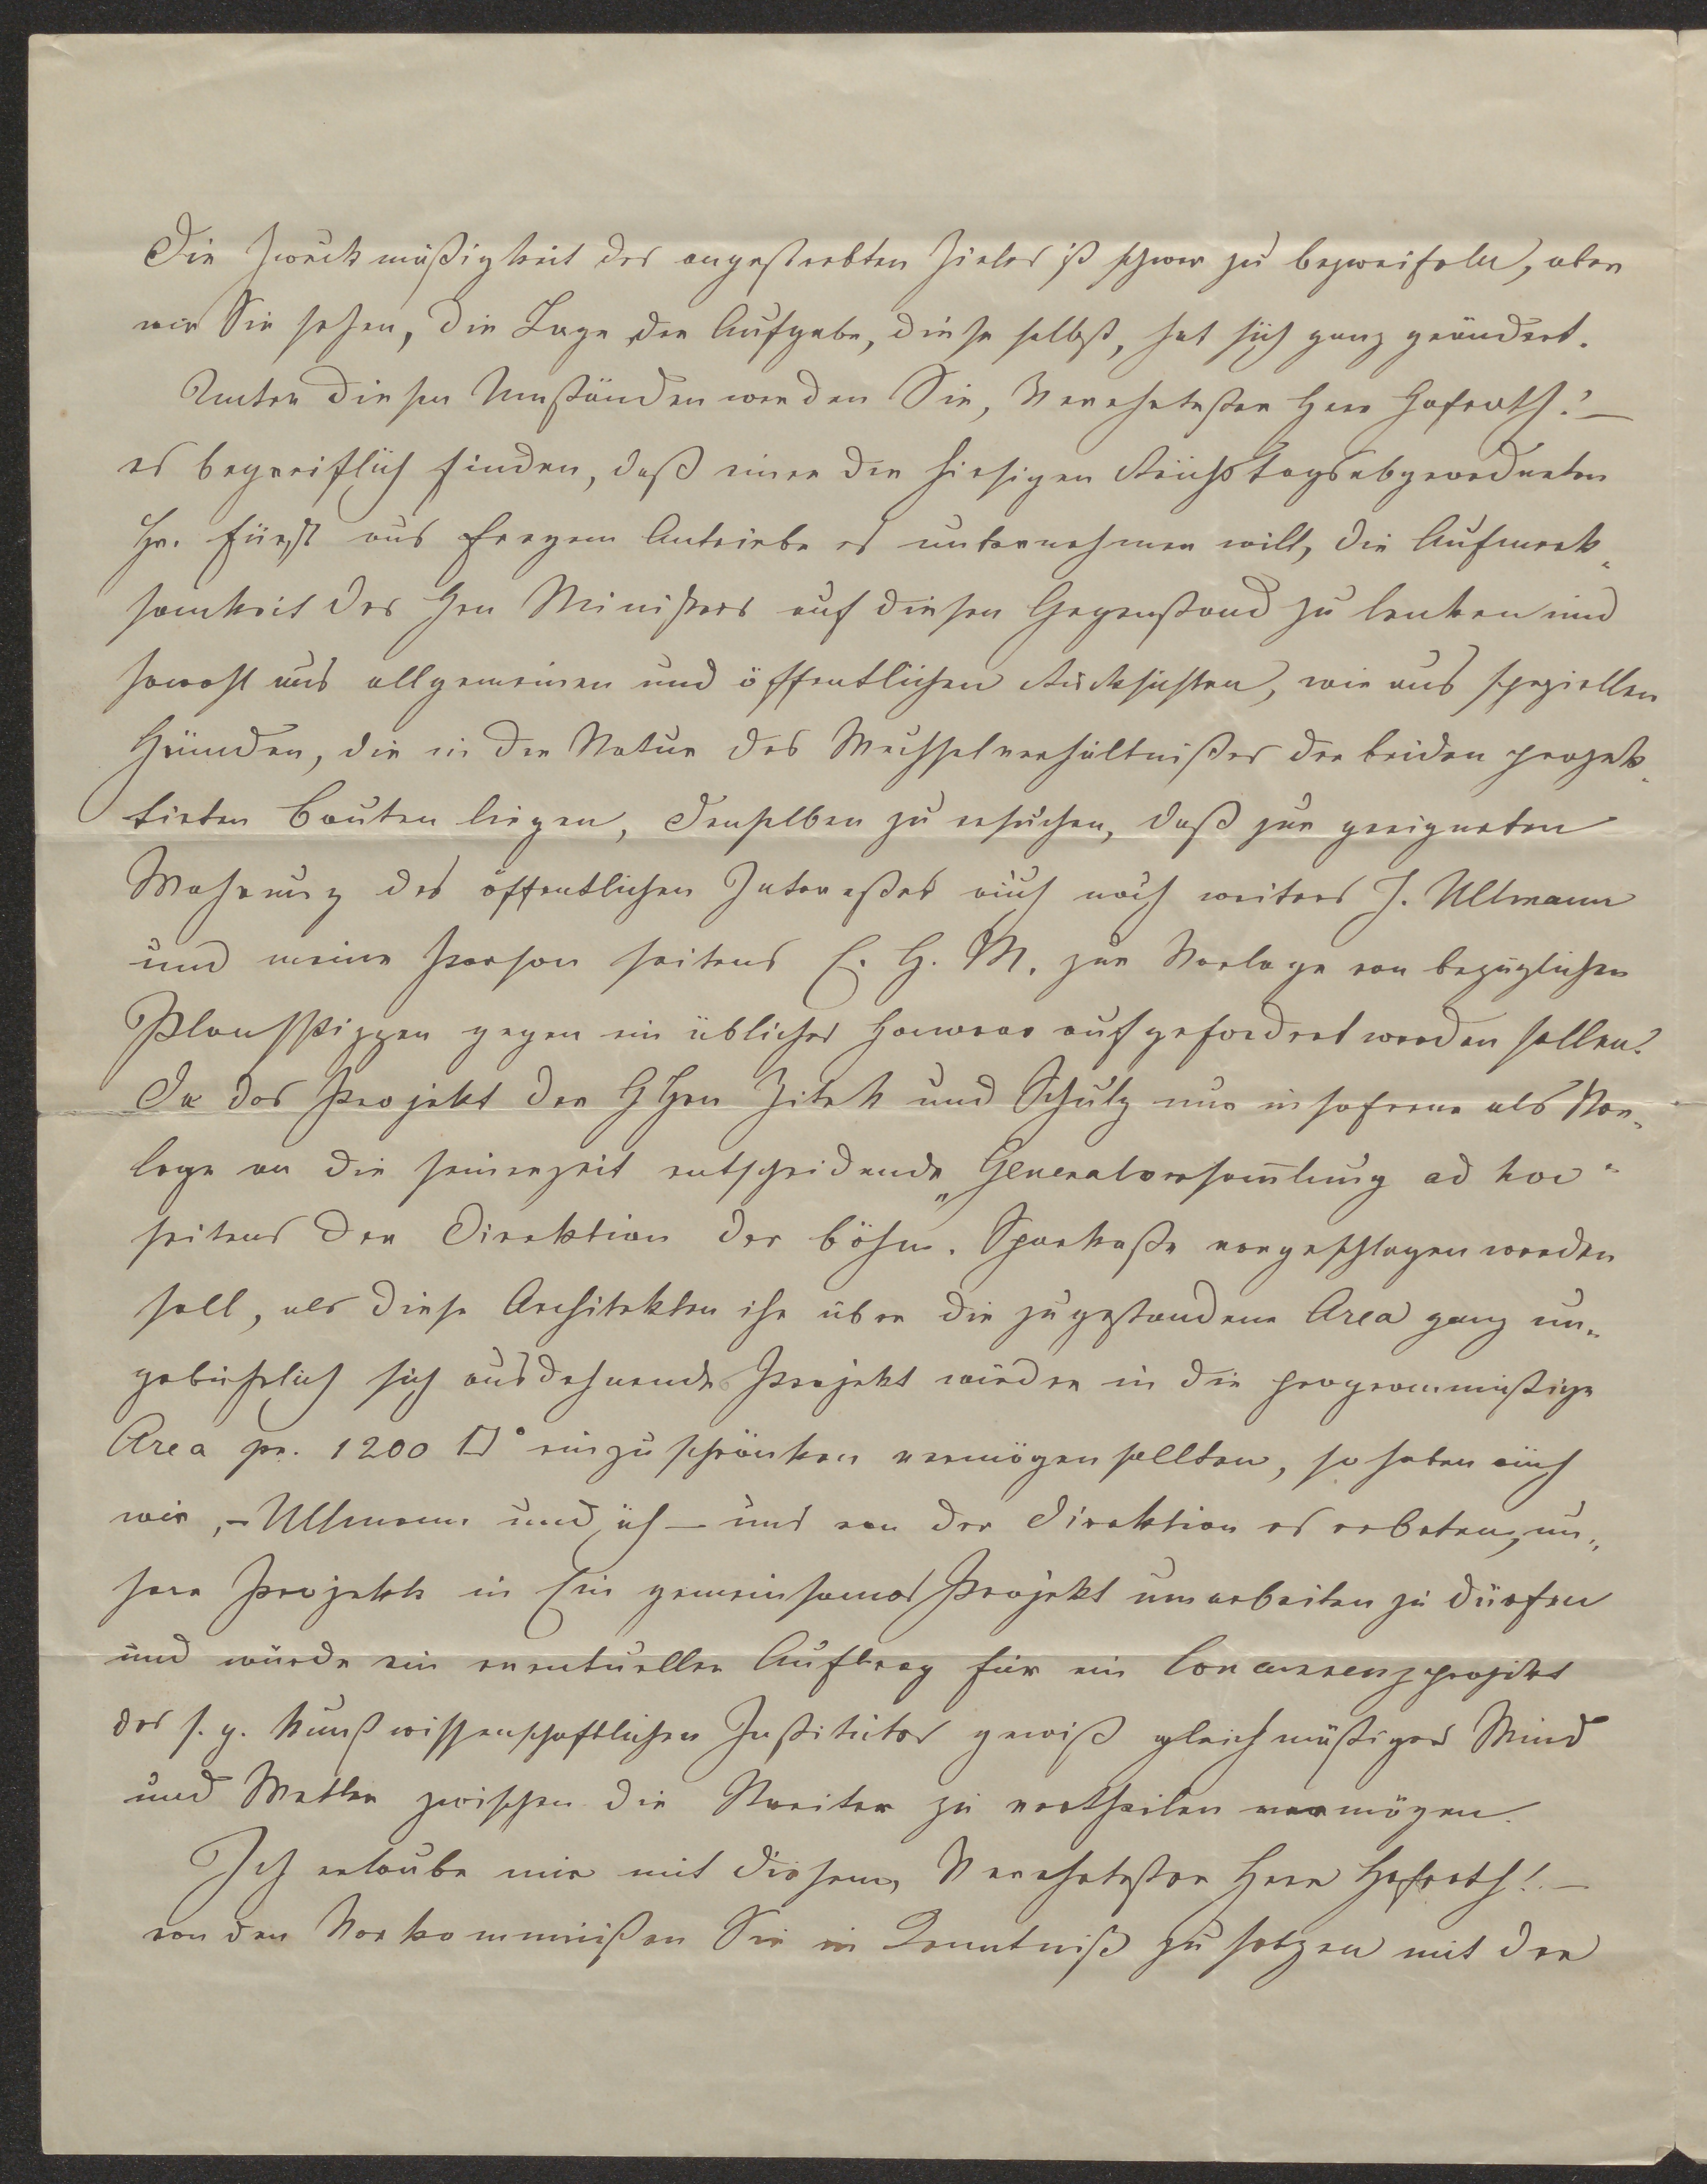 Die Zweckmäßigkeit des angestrebten Zieles ist schwer zu bezweifeln, aber
wie Sie sehen, die Lage der Aufgabe, diese selbst, hat sich ganz geändert.
Unter diesen Umständen werden Sie, Verehrtester Herr Hofrath! –
es begreiflich finden, daß einer der hiesigen Reichstagsabgeordneten
Hr. Fürst aus freyem Antriebe es unternehmen will, die Aufmerk-
samkeit des Hrn Ministers auf diesen Gegenstand zu lenken und
sowohl aus allgemeinen und öffentlichen Rücksichten, wie aus speziellen
Gründen, die in der Natur des Wechselverhältnißes der beiden projek-
tirten Bauten liegen, denselben zu ersuchen, daß zur geeigneten
Wahrung des öffentlichen Intereßes auch noch weiters J. Ullmann
und meine Person seitens E. H. M. zur Vorlage von bezüglichen
Planskizzen gegen ein übliches Honorar aufgefordert werden sollen.
Da das Projekt der HHrn Zitek und Schulz nur insoferne als Vor-
lage an die seinerzeit entscheidende „Generalversam̄lung ad hoc"
seitens der Direktion der böhm. Sparkaße vorgeschlagen werden
soll, als diese Architekten ihr über die zugestandene Area ganz un-
gebührlich sich ausdehnendes Projekt wieder in die programmäßige
Area pr. 1200 □° einzuschränken vermögen sollten, so haben auch
wir, – Ullmann und ich – uns von der Direktion es erbeten, un-
sere Projekte in Ein gemeinsames Projekt umarbeiten zu dürfen
und würde ein eventueller Auftrag für ein Concurrenzprojekt
des s. g. kunstwissenschaftlichen Institutes gewiß gleichmäßiger Wind
und Wetter zwischen die Streiter zu vertheilen vermögen.
Ich erlaube mir mit diesem, Verehrtester Herr Hofrath! –
von den Vorkommnißen Sie in Kenntniß zu setzen mit der